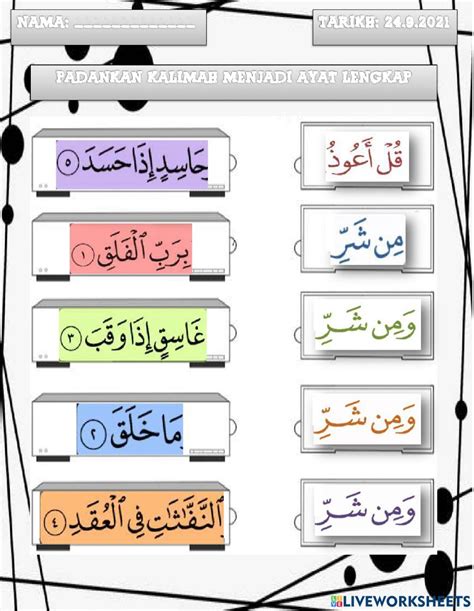 NAMA: _____________
TARIKH: 24.8.2021
PADANKAN KALIMAH MENJADI AYAT LENGKAP
قُلۡ أَعُوذُ
حَاسِدٍ إِذَا حَسَدَ ٥
مِن شَرِّ
بِرَبِّ ٱلۡفَلَقِ ١
وَمِن شَرِّ
غَاسِقٍ إِذَا وَقَبَ ٣
وَمِن شَرِّ
مَا خَلَقَ ٢
وَمِن شَرِّ
ٱلنَّفَّٰثَٰتِ فِي ٱلۡعُقَدِ ٤
LIVEWORKSHEETS